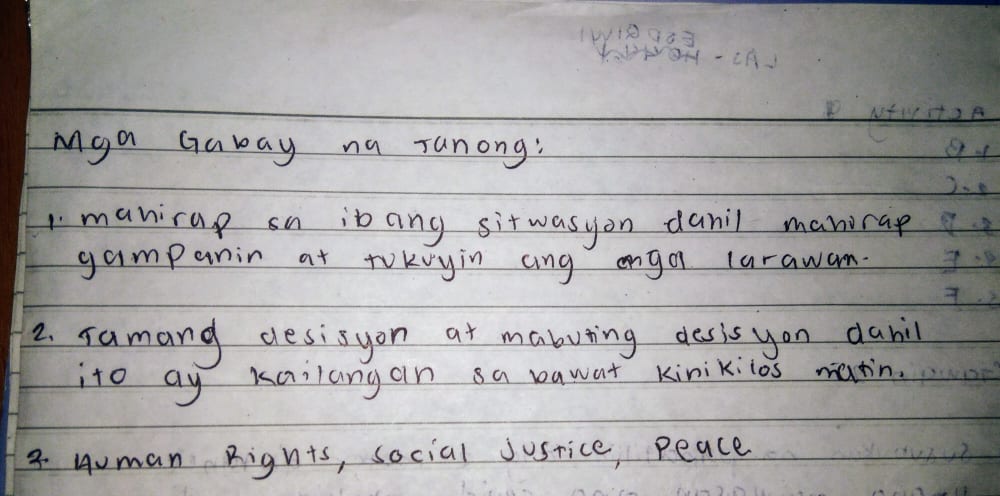 Mga Gabay na Tanong:
1. mahirap sa ibang sitwasyon dahil mahirap
gampanin at tukuyin ang mga larawan.
2. Tamang desisyon at mabuting desisyon dahil
ito ay kailangan sa bawat kinikilos natin.
3. Human Rights, social justice, peace